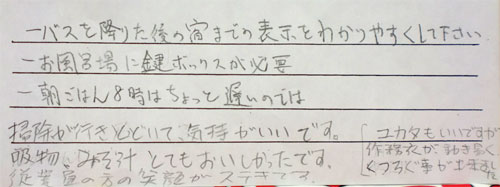 一バスを降りた後の宿までの表示をわかりやすくして下さい
一お風呂場に鍵ボックスが必要
一朝ごはん8時はちょっと遅いのでは
掃除が行きとどいて、気持がいいです。
吸物、みそ汁とてもおいしかったです。
従業員の方の笑顔がステキです。
ユカタもいいですが
作務衣が、動き易く
くつろぐ事が出来ます